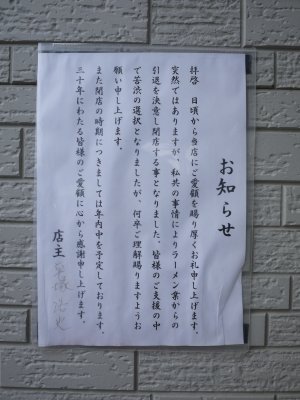 お知らせ
拝啓 日頃から当店にご愛顧を賜り厚くお礼申し上げます。
突然ではありますが、私共の事情によりラーメン業からの
引退を決意し閉店する事となりました。皆様のご支援の中
で苦渋の選択となりましたが、何卒ご理解賜りますようお
願い申し上げます。
また閉店の時期につきましては年内中を予定しております。
三十年にわたる皆様のご愛顧に心から感謝申し上げます。
店主